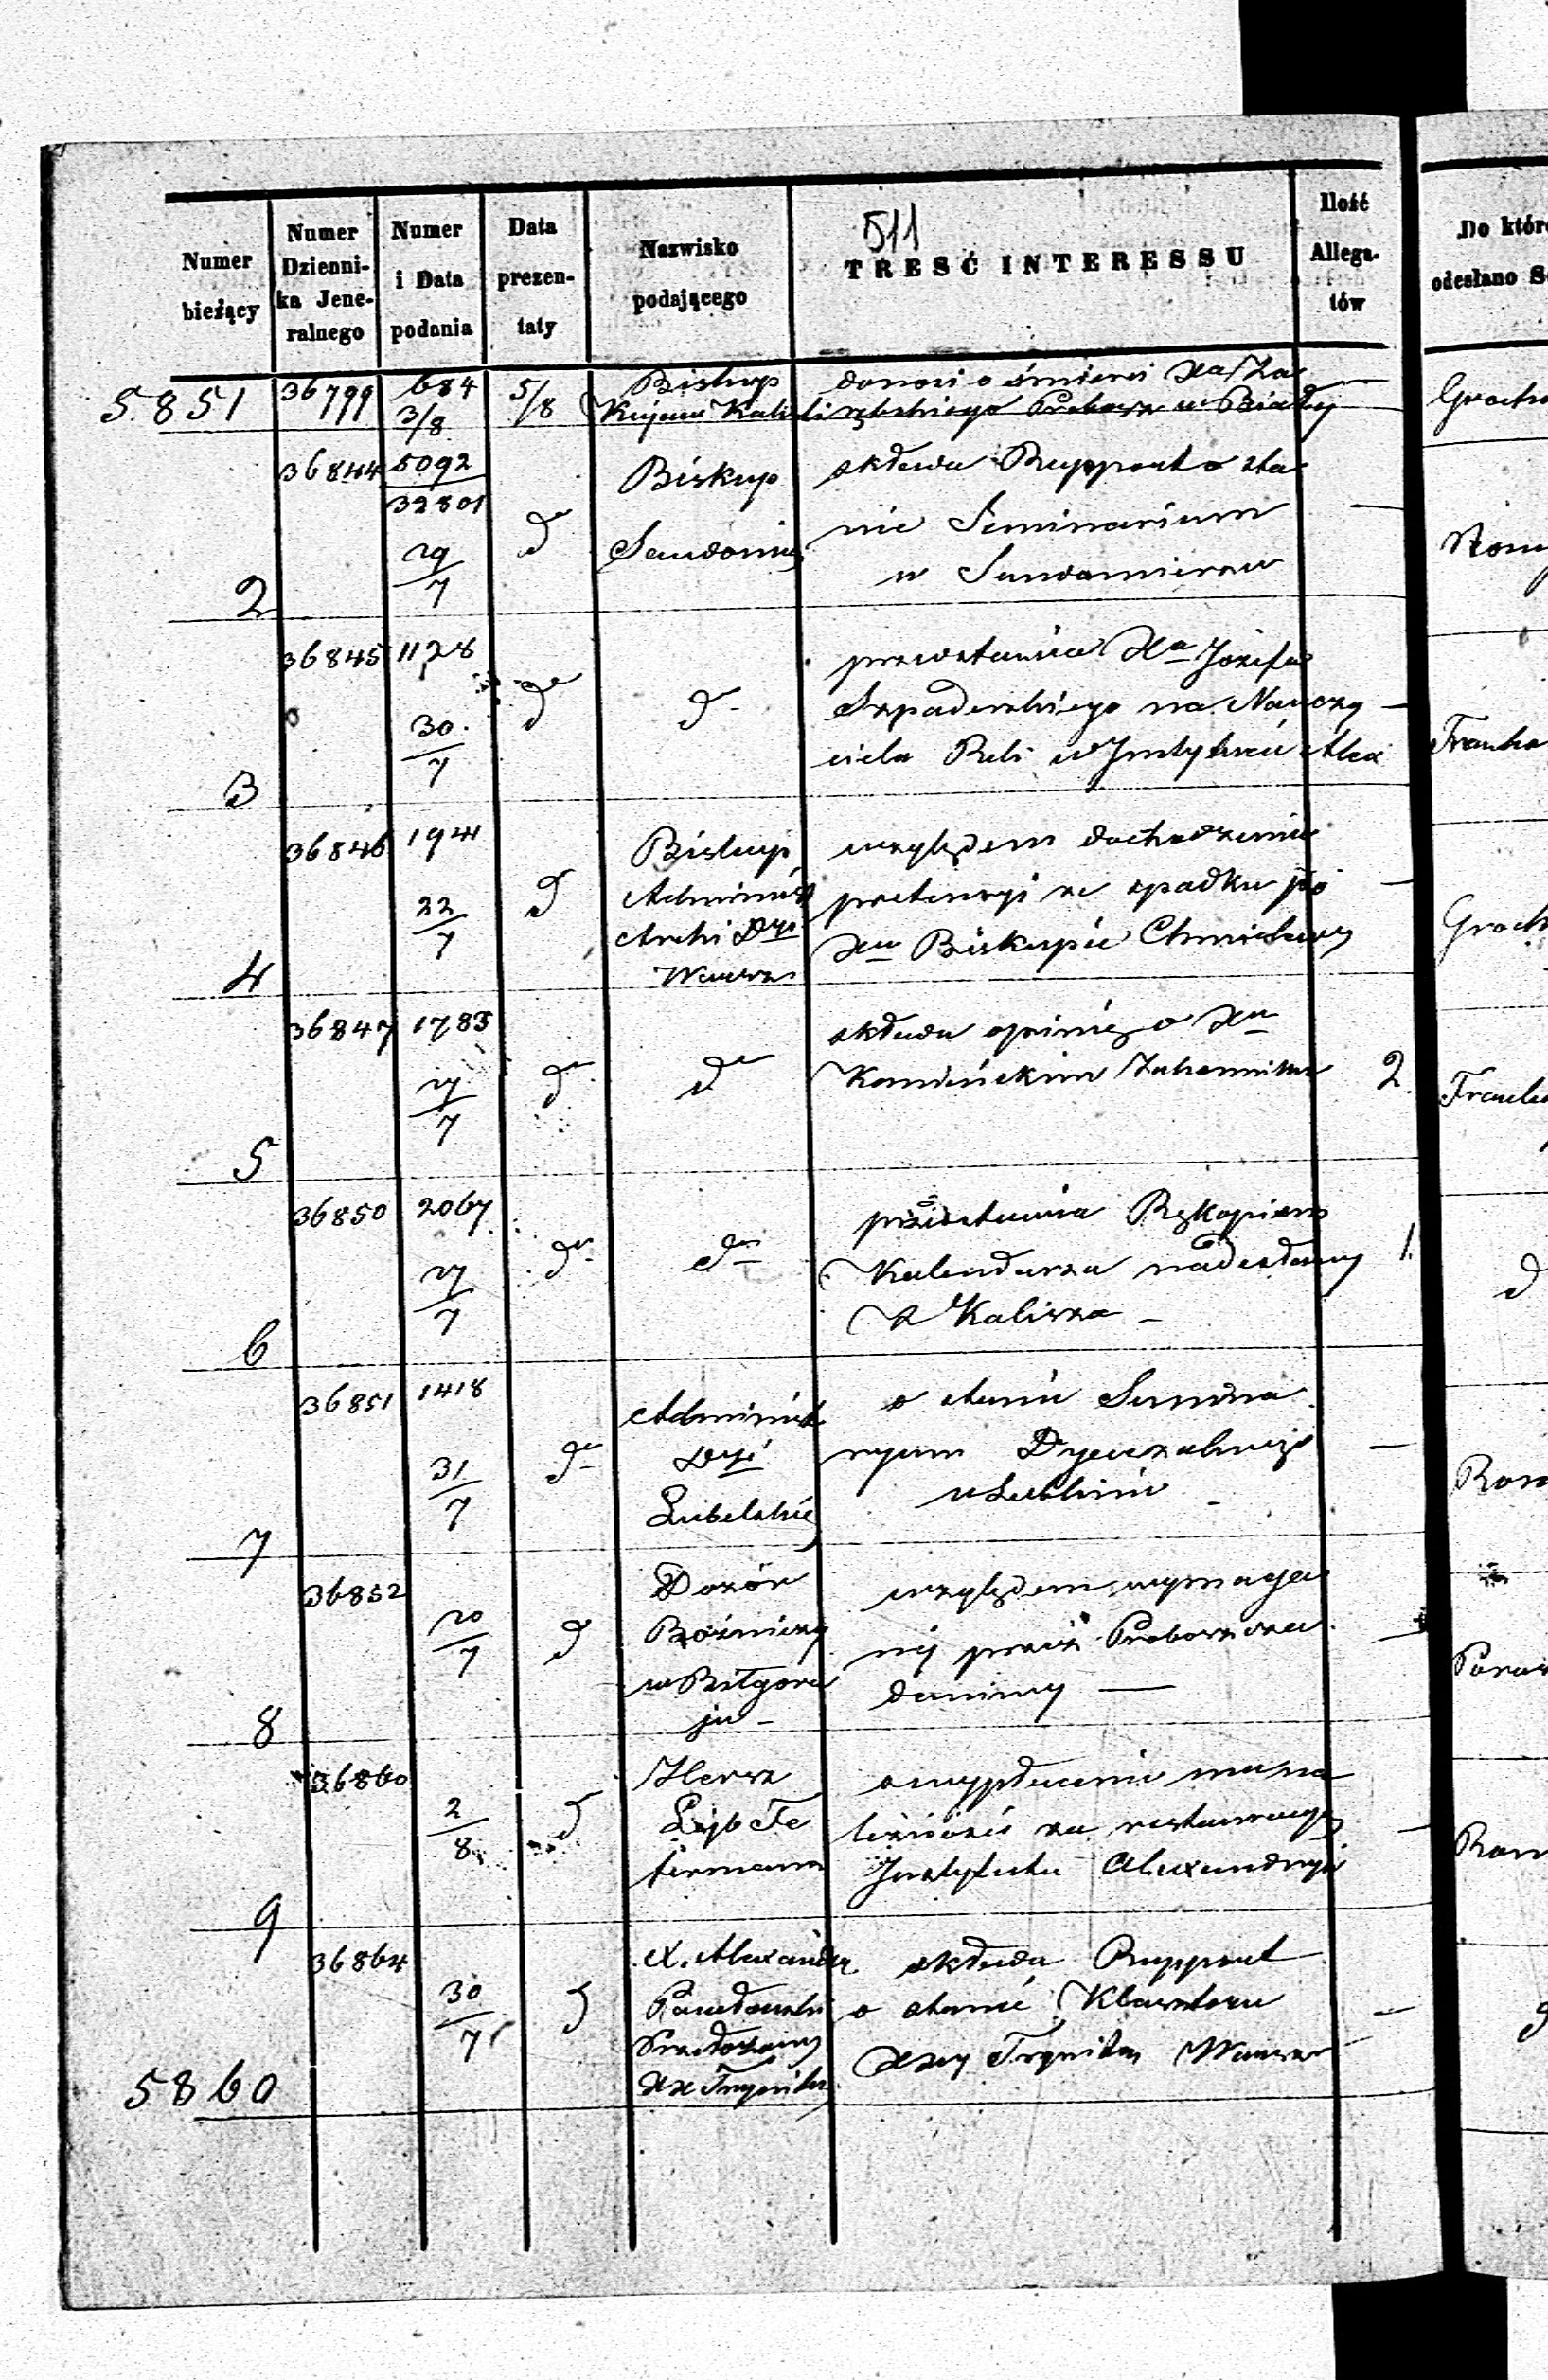 511
Numer bieżący
Numer Dzienni-ka Jene-ralnego
Numer i Data podania
Data prezen-taty
Nazwisko podającego
TRESĆ INTERESSU
Ilość Allega-tów
Do któr
odesłano S
5851 36799 684 3/8 5/8
Biskup
Kujaw Kali
donosi o śmierci Xa Za
Probosz w Biały
2 36844 5092 32801 29/7 do
Biskup
Sandomir
składa Rapport o sta
nie Seminarium
w Sandomierzu
3 36845 1128 30/7 do do
przedstawia Xa Józefa
Szpaderskiego na Nauczy
ciela Reli w Instytucie Alex
4 36846 1941 22/7 d
Biskup
Administ
Archi Dyi
Warsza
względem dochodzenia
pretensyi ze spadku po
Xu Biskupie Chmielewsk
5 36847 1783 27/7 do do
składa opinię o Xu
Kamińskim Zakonniku
2
6 36850 2067 27/7 do do
przedstawia Rękopism
Kalendarza nadesłany
z Kalisza
1.
7 36851 1418 31/7 do
Administ
Dyi
Lubelskiej
o stanie Semina
ryum Dyecezalnego
w Lublinie
8 36852 20/7 d
Dozór
Bożniczy
w Biłgora
ju
względem wymaga
nej przez Proboszcza
daniny
9 36860 2/8 d
Hersz
Lejb Fe
termann
o wypłacenie nalea
tości za restauracyę
Instytutu Alexandryi
5860 36864 30/7 d
X. Alexander
Przełożony
XX Trynita
składa Rapport
o stanie Klasztoru
Xży Trynita Warsza
Groch
Franka
Groch
d